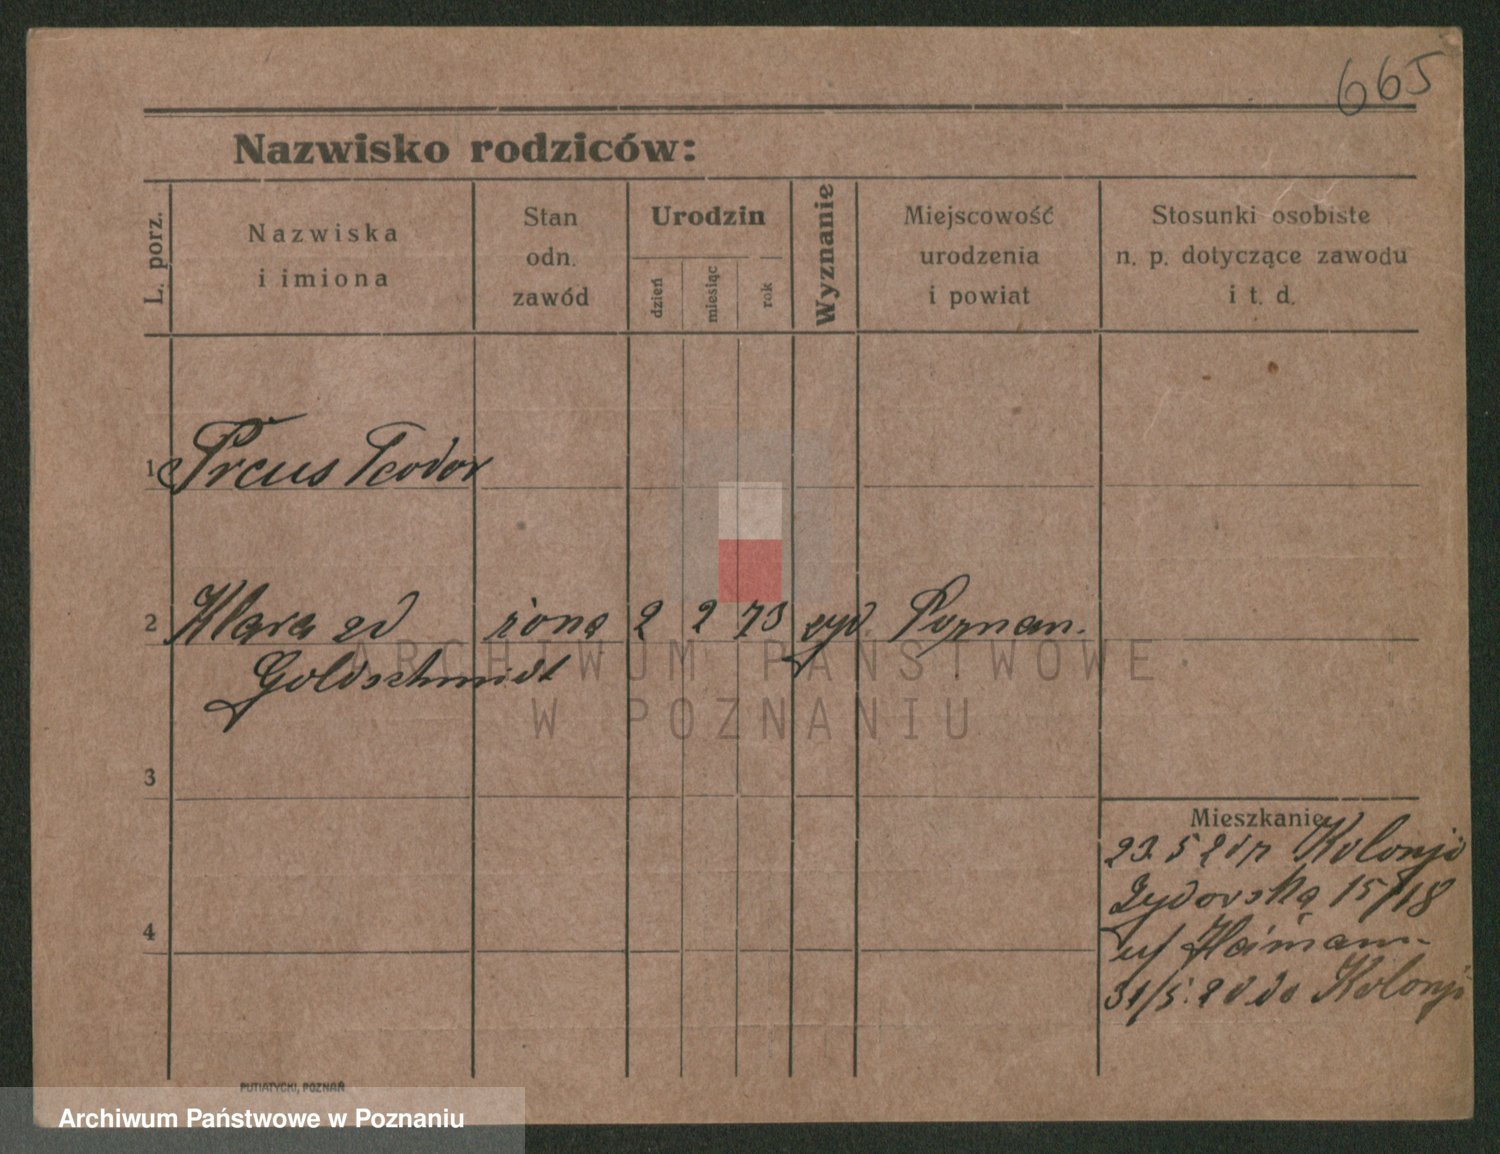 665
Nazwisko rodziców:
L. porz.
Nazwiska
i imiona
Stan
odn.
zawód
Urodzin
dzień
miesiąc
rok
Wyznanie
Miejscowość
urodzenia
i powiat
Stosunki osobiste
n. p. dotyczące zawodu
i t. d.
1 Preus Teodor
2 Klara zd żona 2 2 73 żyd. Poznan.
Goldschmidt
ARCHIWUM PAŃSTWOWE
W POZNANIU
3
4
Mieszkanie
23. 5 20 Kolonji
Żydowska 15/18
Heimann
31/5. 20 do Kolonji
PUTIATYCKI, POZNAŃ
Archiwum Państwowe w Poznaniu